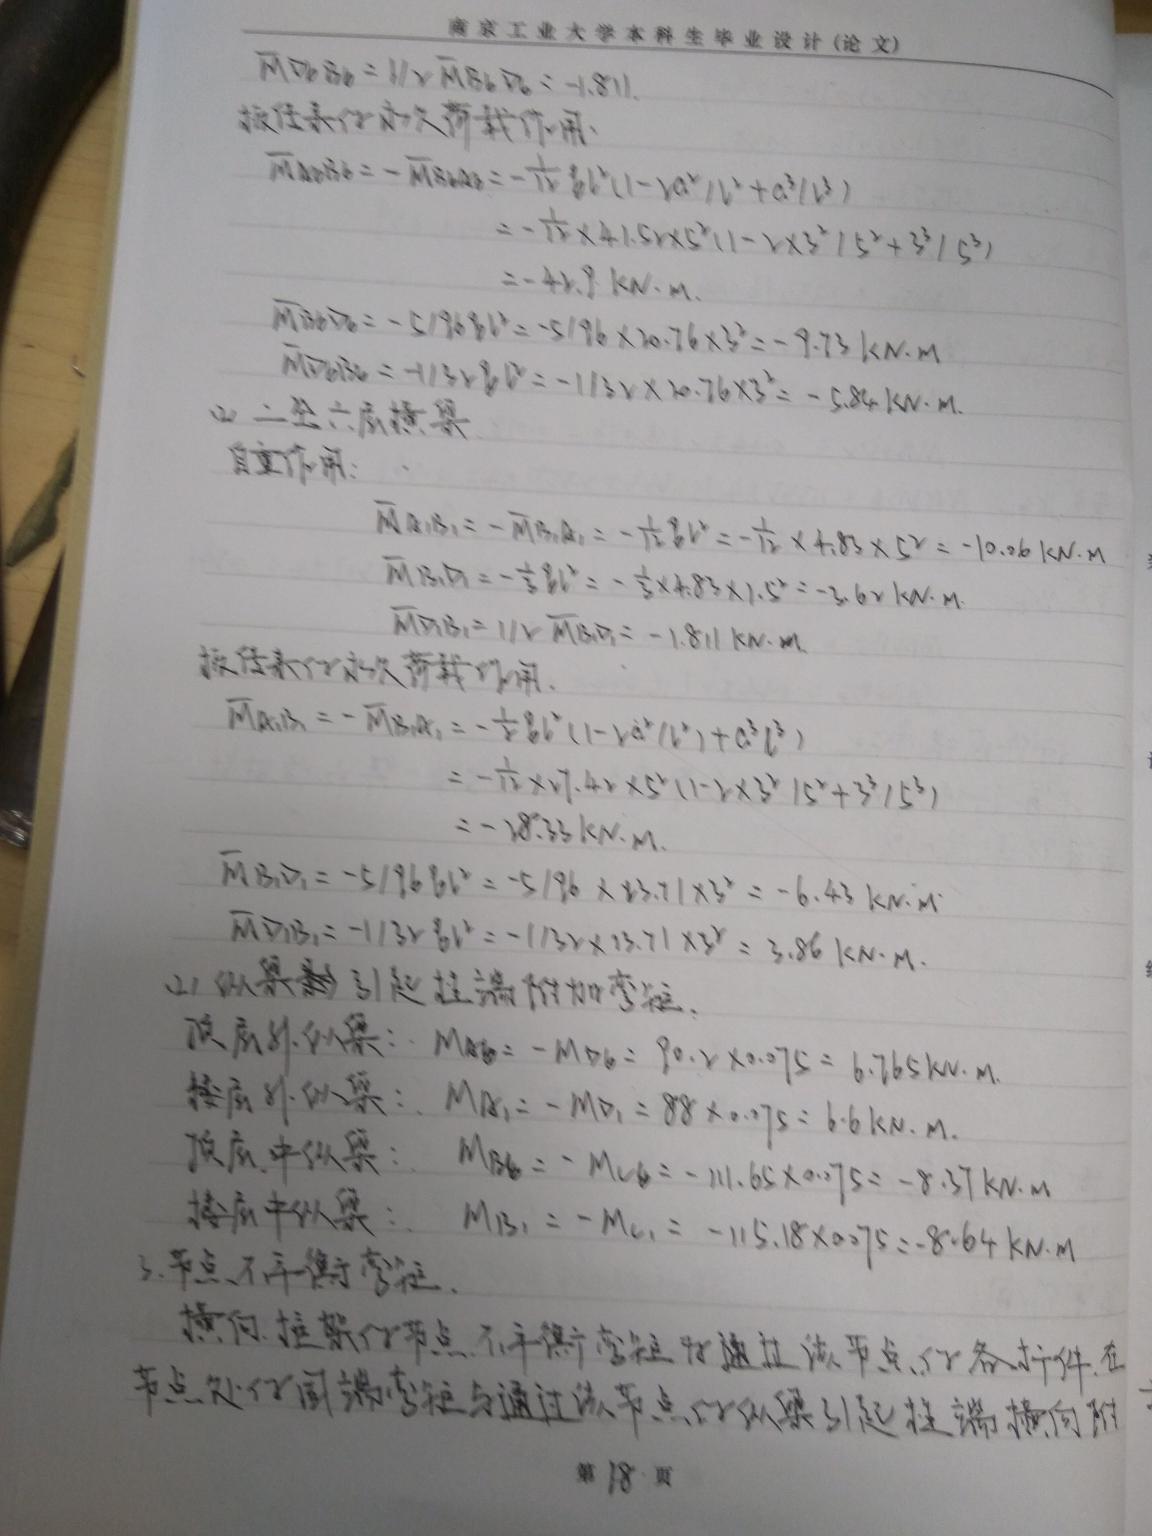 南京工业大学本科生毕业设计(论文)
M̅D6B6 = 1/2 M̅B6D6 = -1.811.
板传来的永久荷载作用.
M̅A6B6 = -M̅B6A6 = -1/12 gl²(1-2a²/l²+a³/l³)
= -1/12×41.52×5²(1-2×3²/5²+3³/5³)
= -42.9 KN·m.
M̅B6D6 = -5/96gl² = -5/96×20.76×3² = -9.73 KN·m
M̅D6B6 = -1/32gl² = -1/32×20.76×3² = -5.84 KN·m.
(2) 二至六层横梁
自重作用:
M̅A1B1 = -M̅B1A1 = -1/12gl² = -1/12×4.83×5² = -10.06 KN·m
M̅B1D1 = -1/3gl² = -1/3×4.83×1.5² = -3.62 KN·m.
M̅D1B1 = 1/2 M̅B1D1 = -1.811 KN·m.
板传来的永久荷载作用.
M̅A1B1 = -M̅B1A1 = -1/12gl²(1-2a²/l²)+a³l³)
= -1/12×27.42×5²(1-2×3²/5²+3³/5³)
= -28.33 KN·m.
M̅B1D1 = -5/96gl² = -5/96×13.71×3² = -6.43 KN·m
M̅D1B1 = -1/32gl² = -1/32×13.71×3² = 3.86 KN·m.
(2) 纵梁引起柱端附加弯矩.
顶层外纵梁: MA6 = -MD6 = 90.2×0.075 = 6.765 KN·m.
楼层外纵梁: MA1 = -MD1 = 88×0.075 = 6.6 KN·m.
顶层中纵梁: MB6 = -MC6 = -111.65×0.075 = -8.37 KN·m
楼层中纵梁: MB1 = -MC1 = -115.18×0.075 = -8.64 KN·m
3.节点不平衡弯矩.
横向框架的节点不平衡弯矩为通过该节点的各杆件在
节点处的固端弯矩与通过该节点的纵梁引起柱端横向附
第 18 页